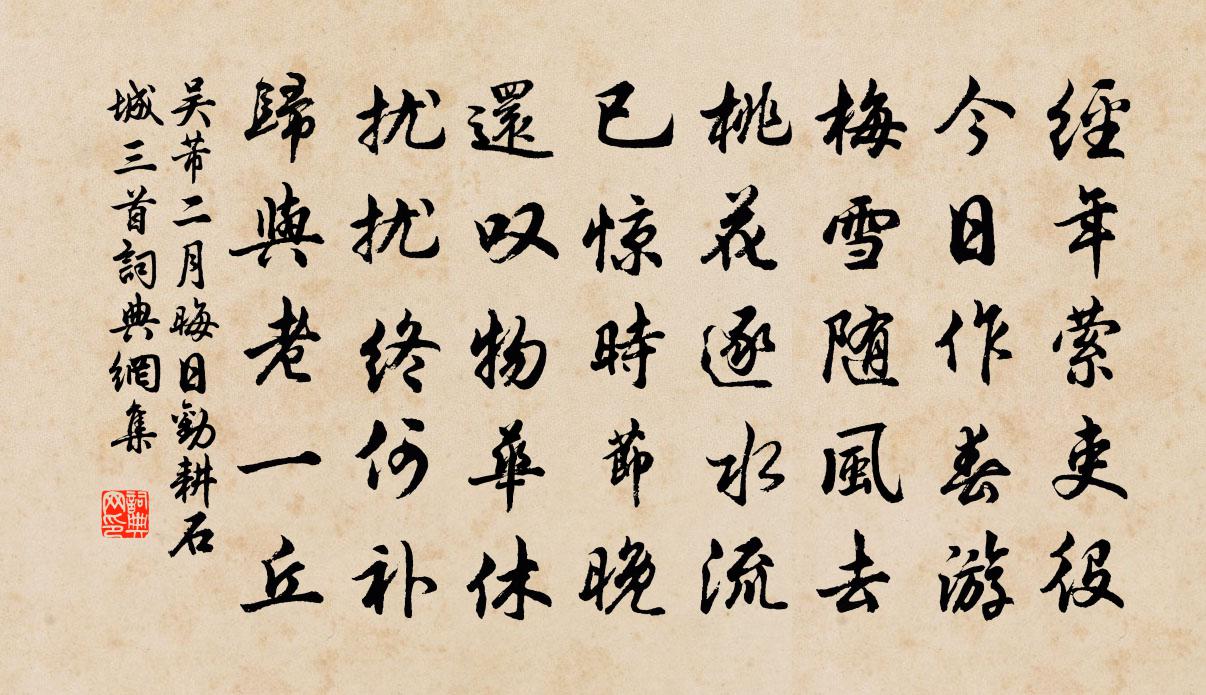 經年萦吏役
今日作春游
梅雪随風去
桃花逐水流
已惊時節晚
還叹物華休
扰扰终何补
歸與老一丘
吴芾二月晦日勸耕石
城三首詞典網集
詞典
网印